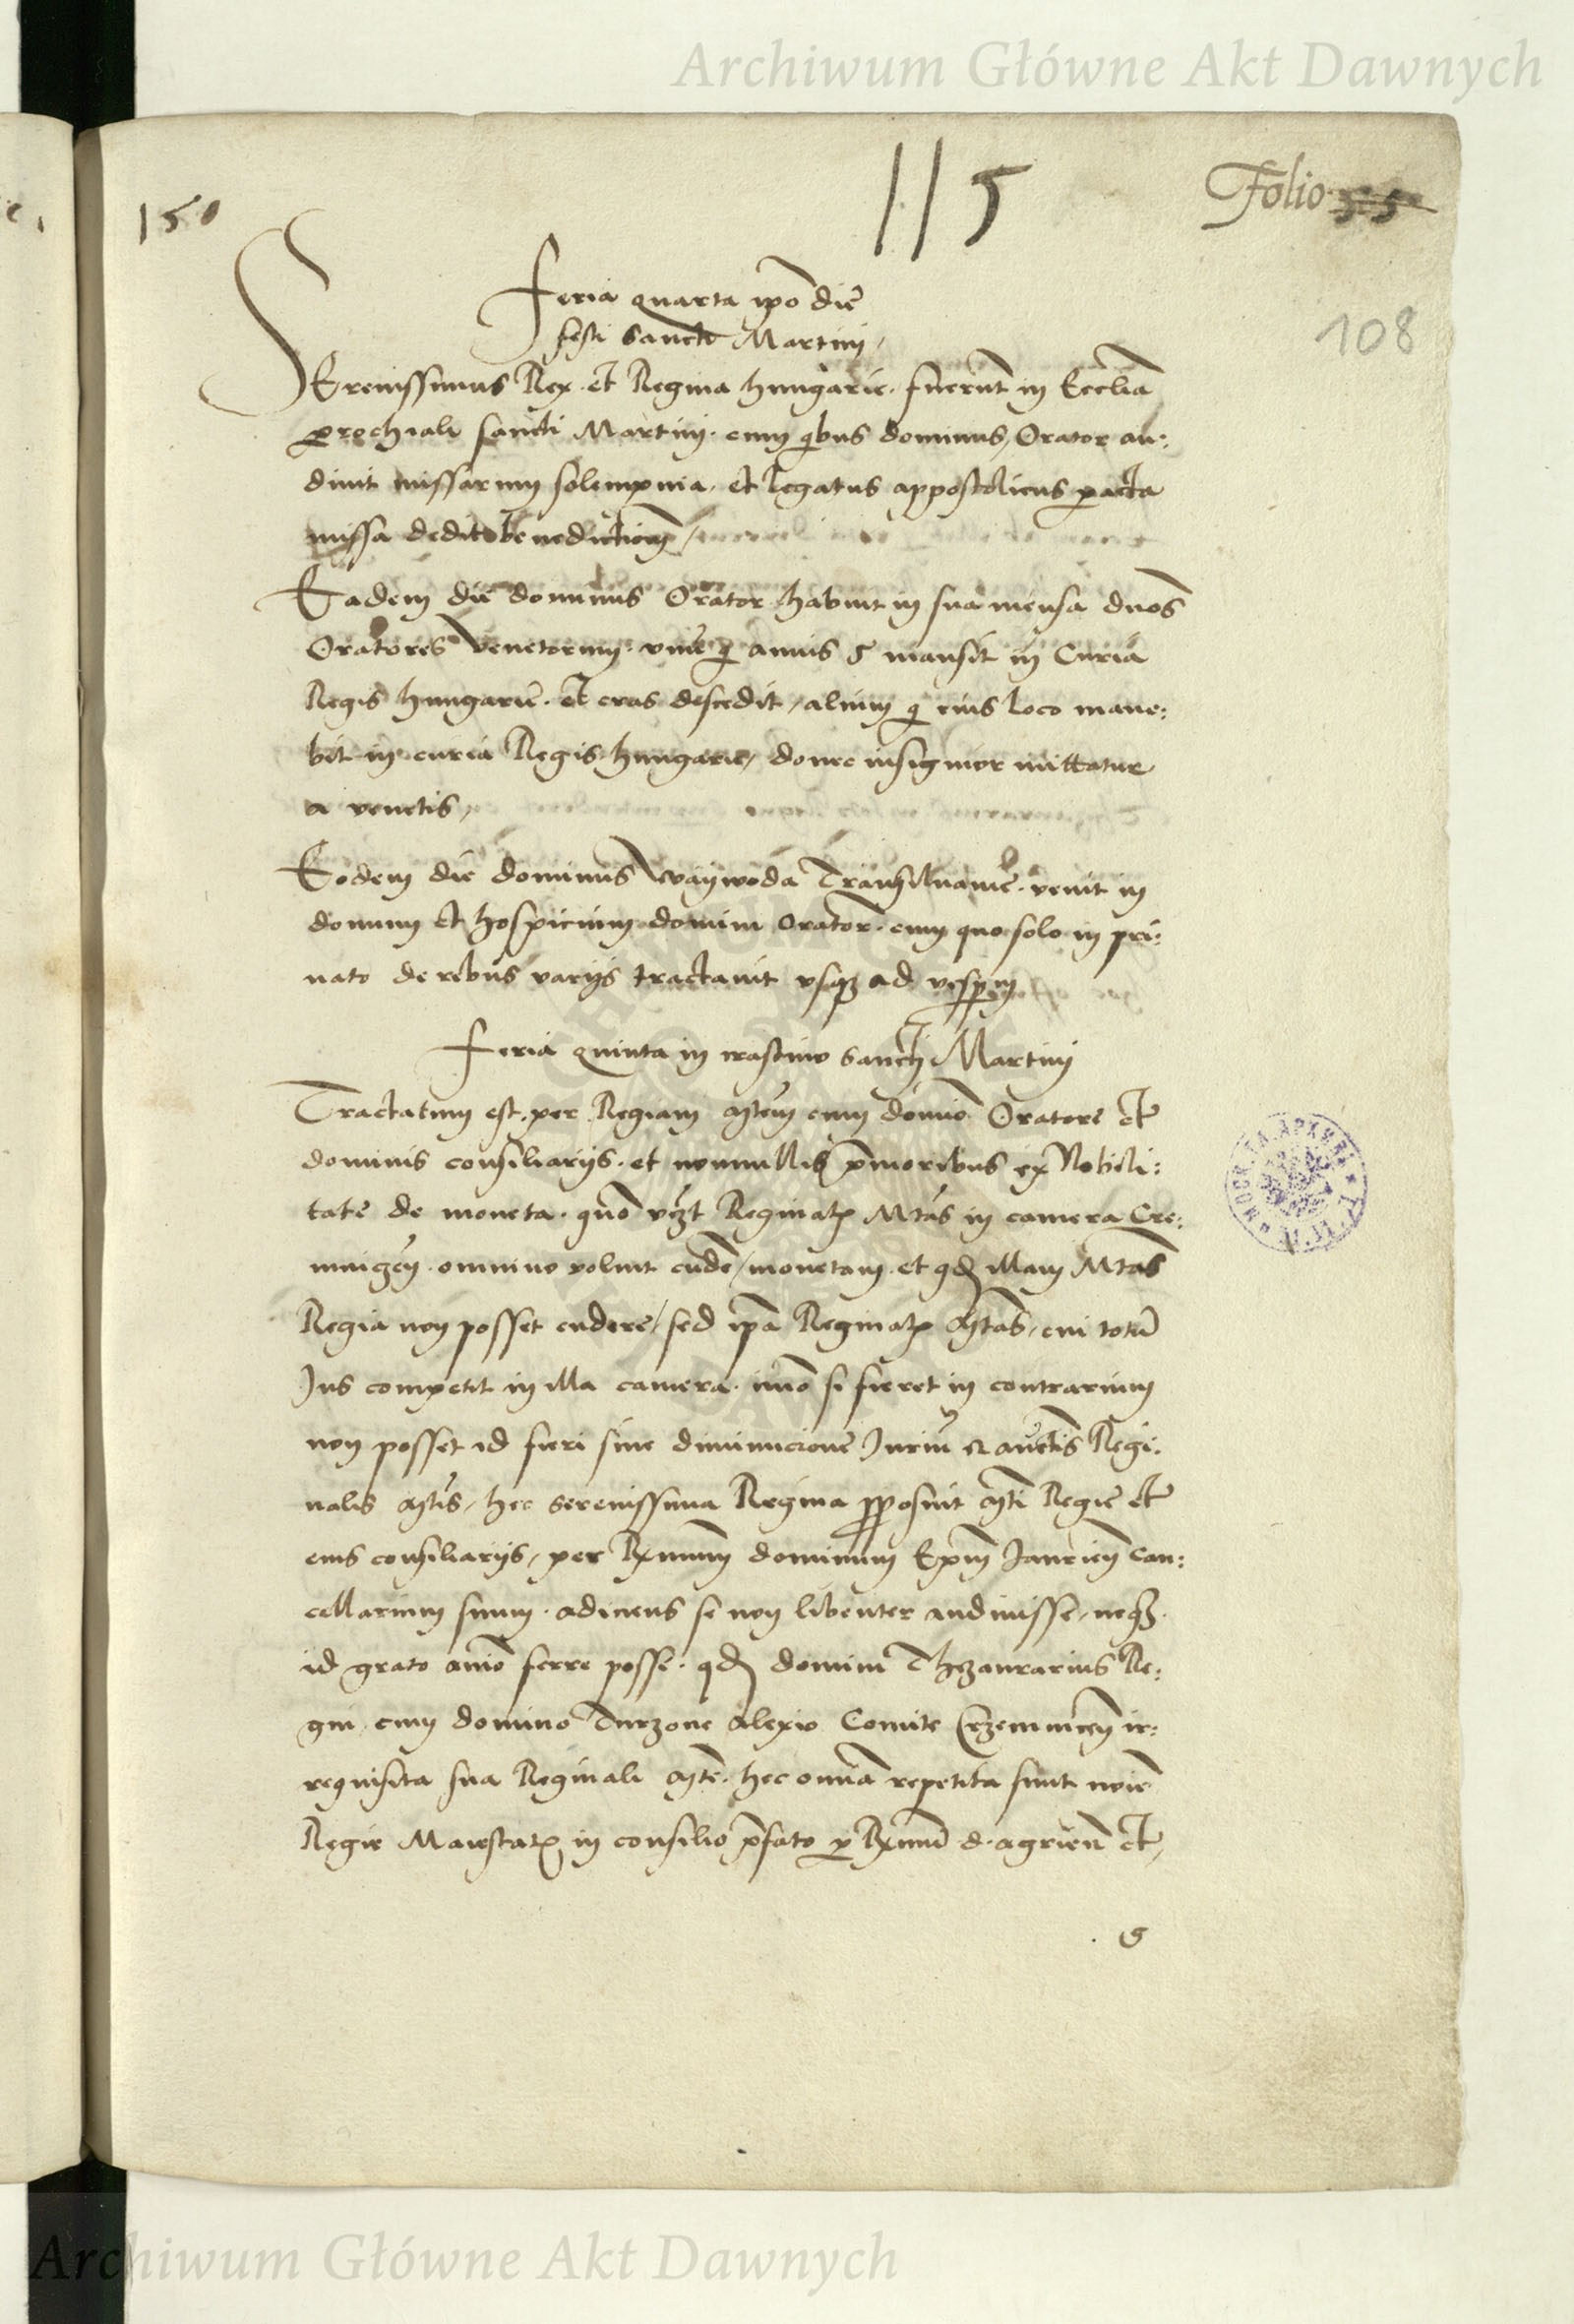 Archiwum Główne Akt Dawnych
150
115
Folio 55
108
Feria quarta ipo die
festi Sancti Martini
SErenissimus Rex et Regina hungarie fuerunt in Ecclia
prochiali sancti Martini cum qbus dominus Orator au:
diuit missarum solempnia et legatus appostolicus pacta
missa dedit benedictionem
Eadem die dominus Orator habuit in sua mensa duos
Oratores Venetorum vnu q annis 5 mansit in Curia
Regis hungarie et cras descedit alium q eius loco mane:
bit in curia Regis hungarie donec insignior mittatur
a venetis
Eodem die dominus Waywoda Transiluanie venit in
domum et hospicium domini oratoris cum quo solo in pri:
uato de rebus varijs tractauit vsq ad vesperu
Feria quinta in crastino Sancti Martini
Tractatum est per Regiam Mtem cum domio Oratore et
dominis consiliarijs et nonnullis pmoribus ex Nobili:
tate de moneta quo vczt Reginalis Mtas in camera Cre:
mnicen omnino voluit cudere monetam et qd illam Mtas
Regia non posset cudere sed ipa Reginalis Mtas cui totu
Jus competit in illa camera imo si fieret in contrarium
non posset id fieri sine diminucione Juriu et auctis Regi:
nalis Mtis hec serenissima Regina pposuit Mti Regie et
eius consiliarijs per Rxmum dominum Epm Jaurien Can:
cellarium suum adiciens se non libenter audiuisse neqz
id grato aio ferre posse qd dominus Thezaurarius Re:
gni cum domino Turzone Alexio Comite Crzemnicen ir:
requisita sua Reginali Mte hec omia repetita sunt noie
Regie Maiestatis in consilio pfato p Rxmu d. agrien et
G
Archiwum Główne Akt Dawnych